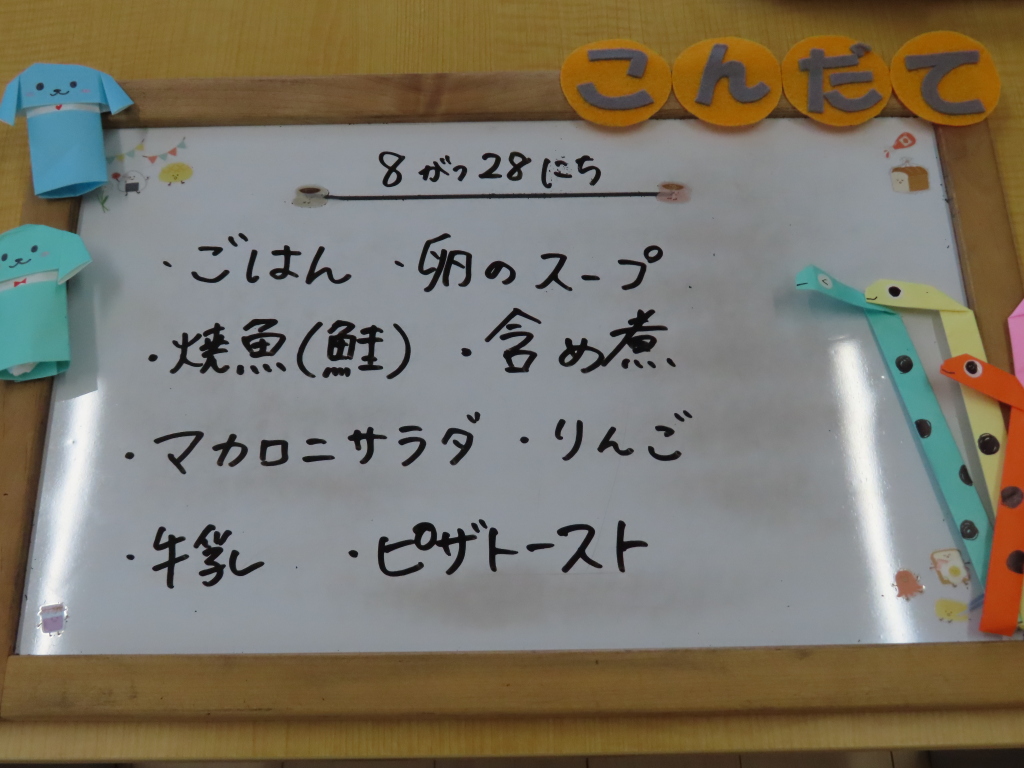 こんだて
8がつ28にち
・ごはん ・卵のスープ
・焼魚(鮭) ・含め煮
・マカロニサラダ ・りんご
・牛乳 ・ピザトースト